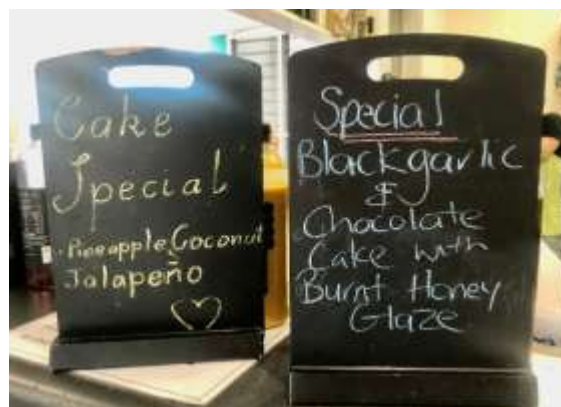 Cake
Special
·Pineapple Coconut
Jalapeño
Special
Blackgarlic
&
Chocolate
Cake with
Burnt Honey
Glaze